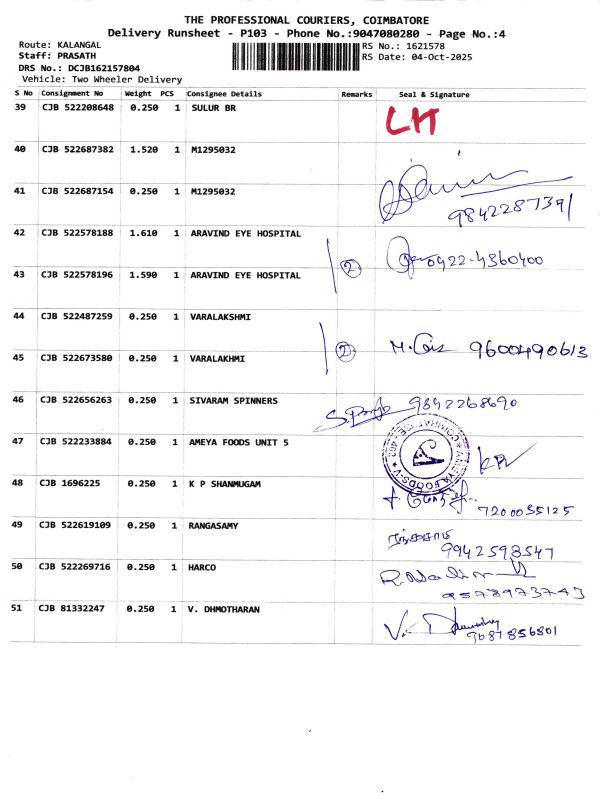 THE PROFESSIONAL COURIERS, COIMBATORE
Delivery Runsheet - P103 - Phone No.:9047080280 - Page No.:4
Route: KALANGAL
RS No.: 1621578
Staff: PRASATH
RS Date: 04-Oct-2025
DRS No.: DCJB162157804
Vehicle: Two Wheeler Delivery
S No Consignment No Weight PCS Consignee Details Remarks Seal & Signature
39 CJB 522208648 0.250 1 SULUR BR
40 CJB 522687382 1.520 1 M1295032
41 CJB 522687154 0.250 1 M1295032
9842287391
42 CJB 522578188 1.610 1 ARAVIND EYE HOSPITAL
2 0422-4360400
43 CJB 522578196 1.590 1 ARAVIND EYE HOSPITAL
44 CJB 522487259 0.250 1 VARALAKSHMI
2 9600490613
45 CJB 522673580 0.250 1 VARALAKHMI
46 CJB 522656263 0.250 1 SIVARAM SPINNERS
9842268690
47 CJB 522233884 0.250 1 AMEYA FOODS UNIT 5
48 CJB 1696225 0.250 1 K P SHANMUGAM
7200035125
49 CJB 522619109 0.250 1 RANGASAMY
9942593547
50 CJB 522269716 0.250 1 HARCO
9578973743
51 CJB 81332247 0.250 1 V. DHMOTHARAN
9087856801